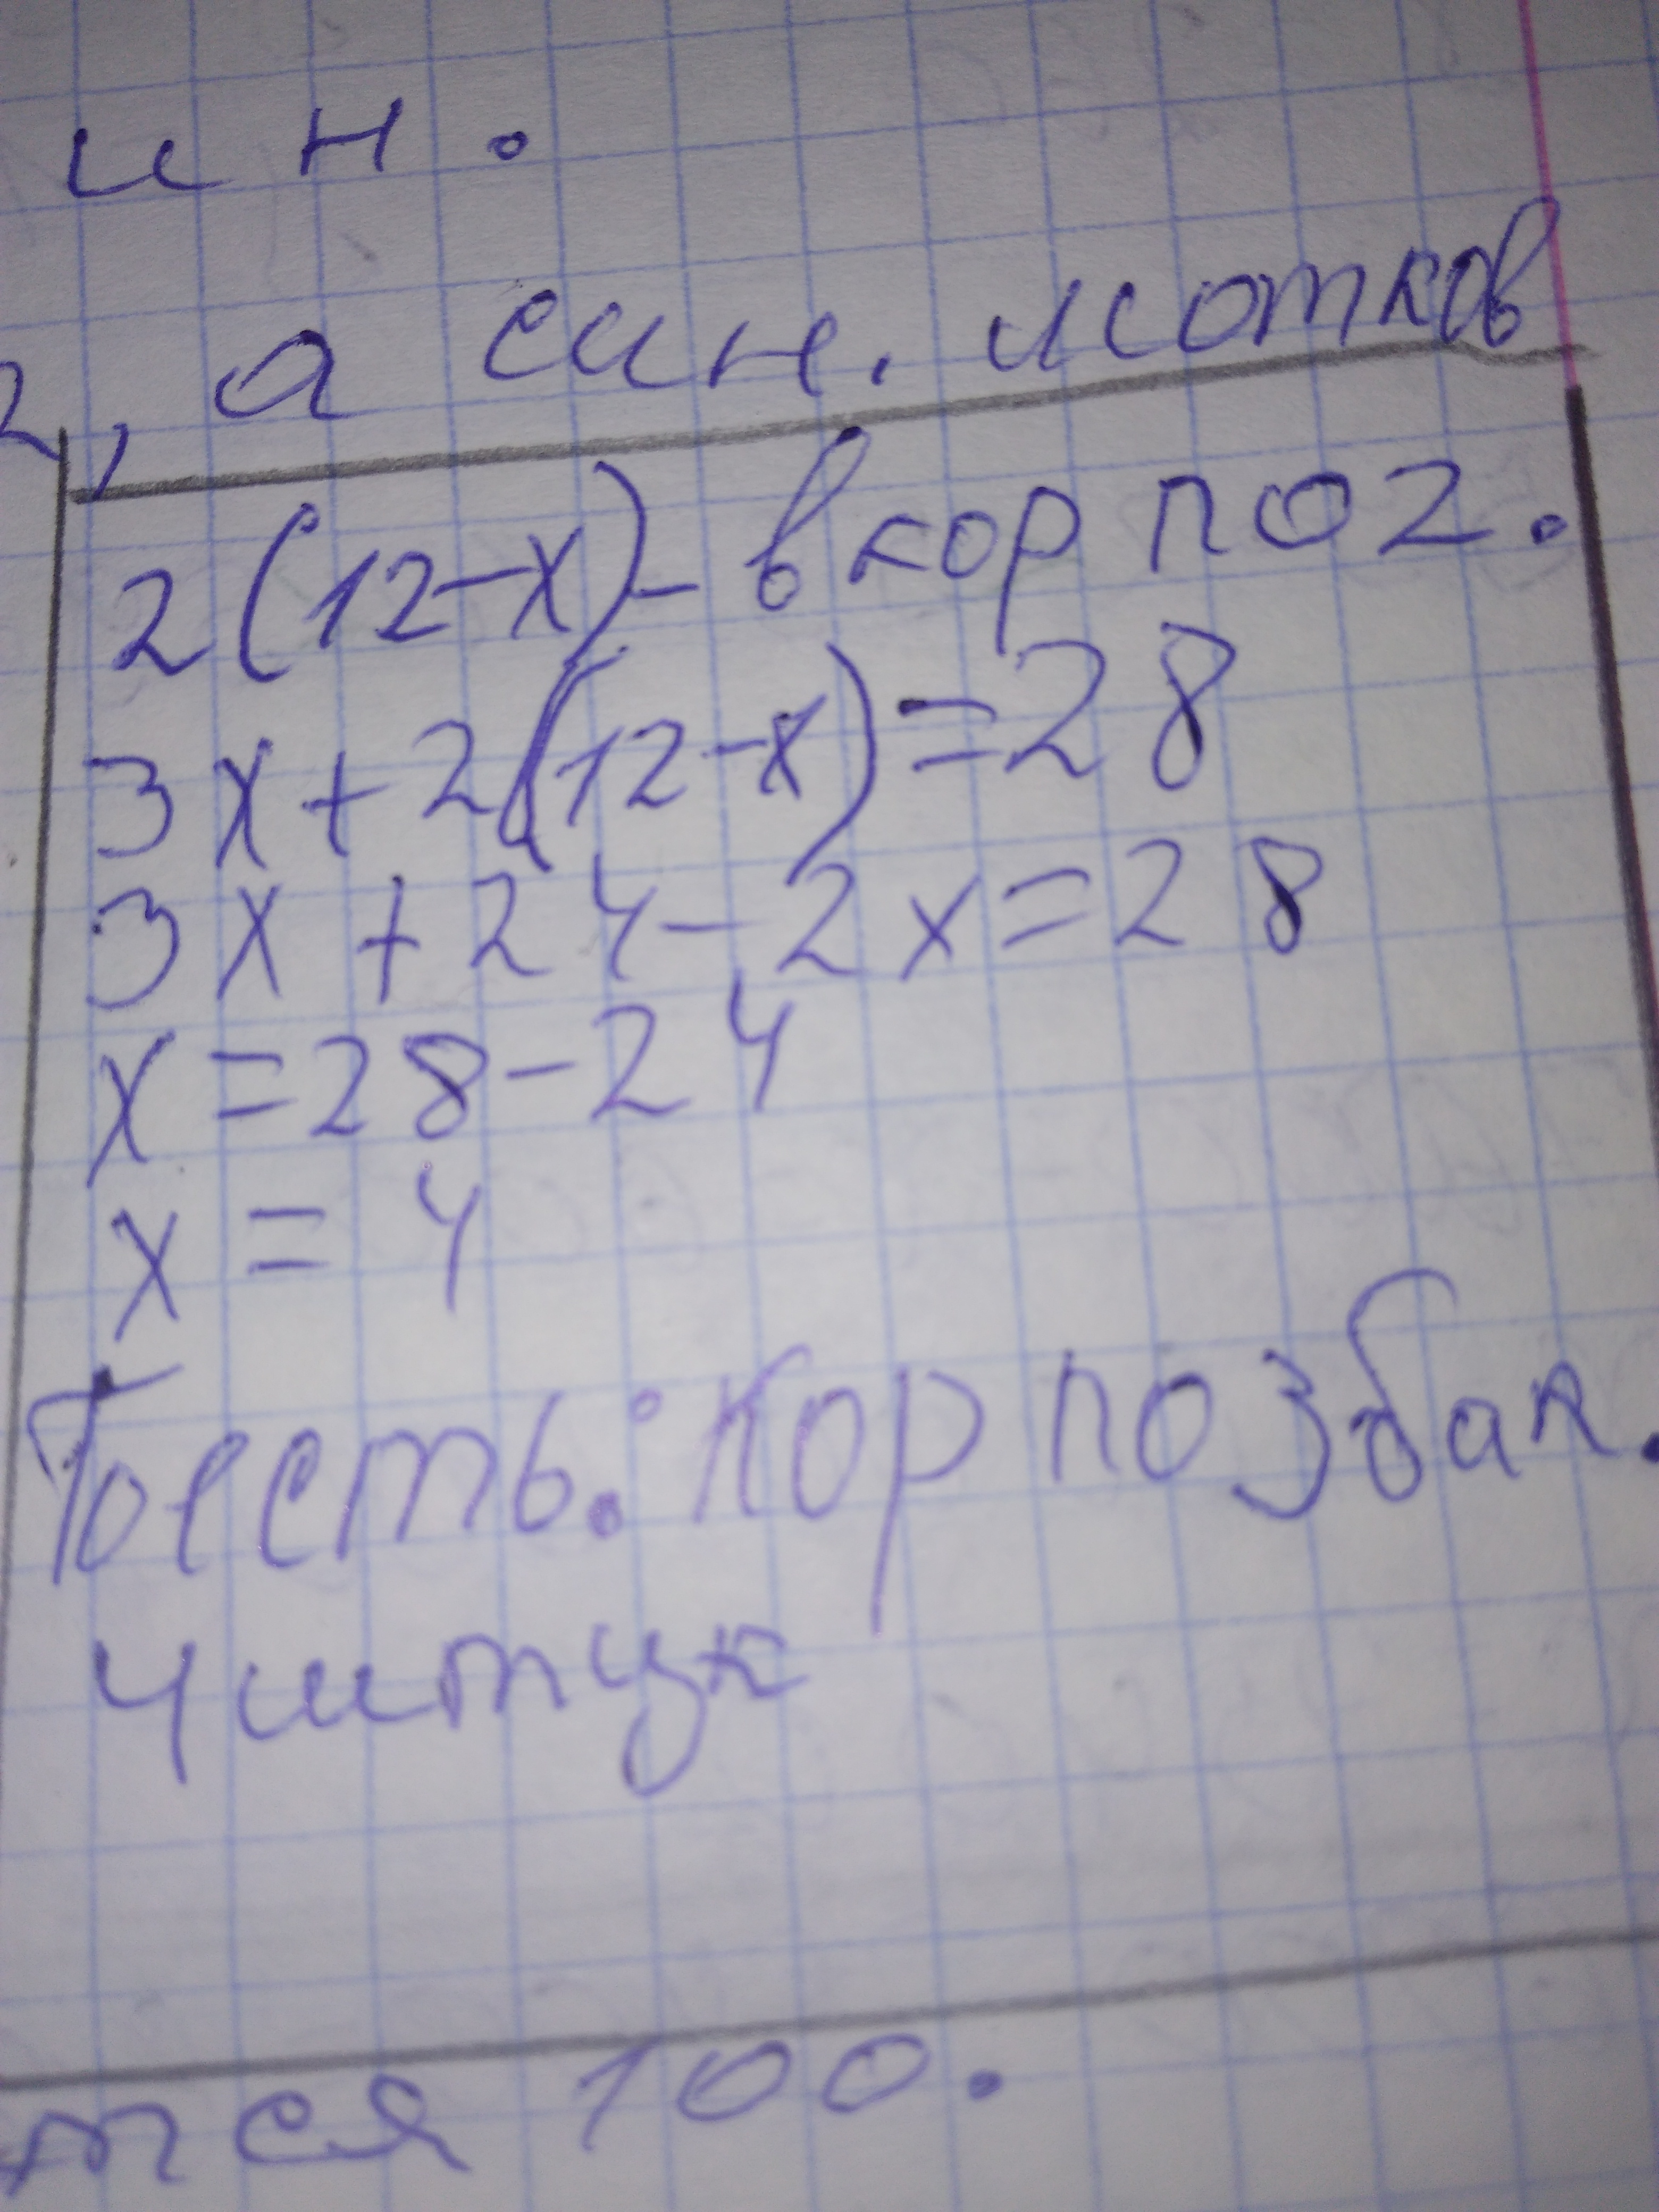 ин.
2, а син. мотков
2(12-x)- в кор по 2.
3x+2(12-x)=28
3x+24-2x=28
x=28-24
x=4
Тоесть: кор по 3 бак.
4 штук
тся 100.